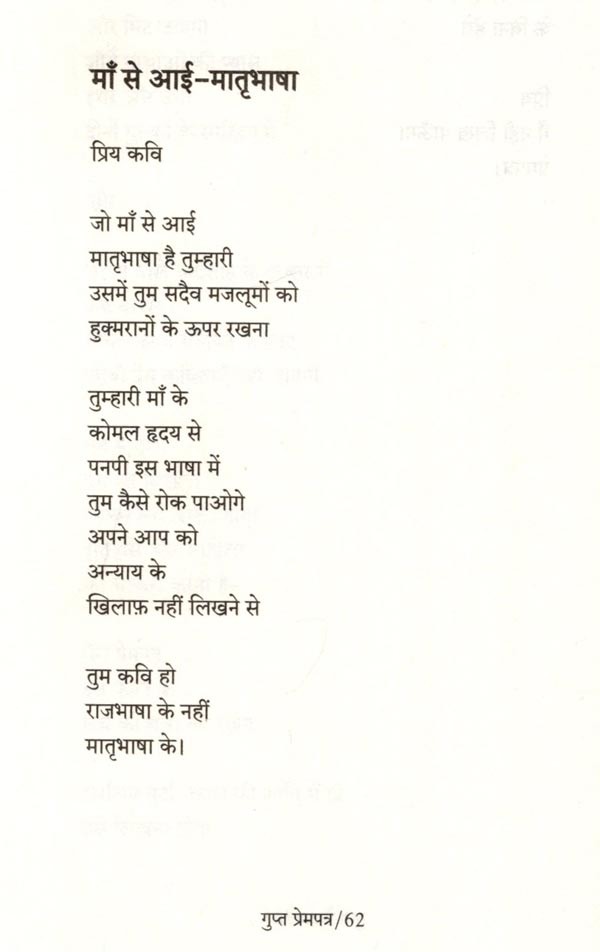 माँ से आई–मातृभाषा
प्रिय कवि
जो माँ से आई
मातृभाषा है तुम्हारी
उसमें तुम सदैव मजलूमों को
हुक्मरानों के ऊपर रखना
तुम्हारी माँ के
कोमल हृदय से
पनपी इस भाषा में
तुम कैसे रोक पाओगे
अपने आप को
अन्याय के
खिलाफ़ नहीं लिखने से
तुम कवि हो
राजभाषा के नहीं
मातृभाषा के।
गुप्त प्रेमपत्र/62